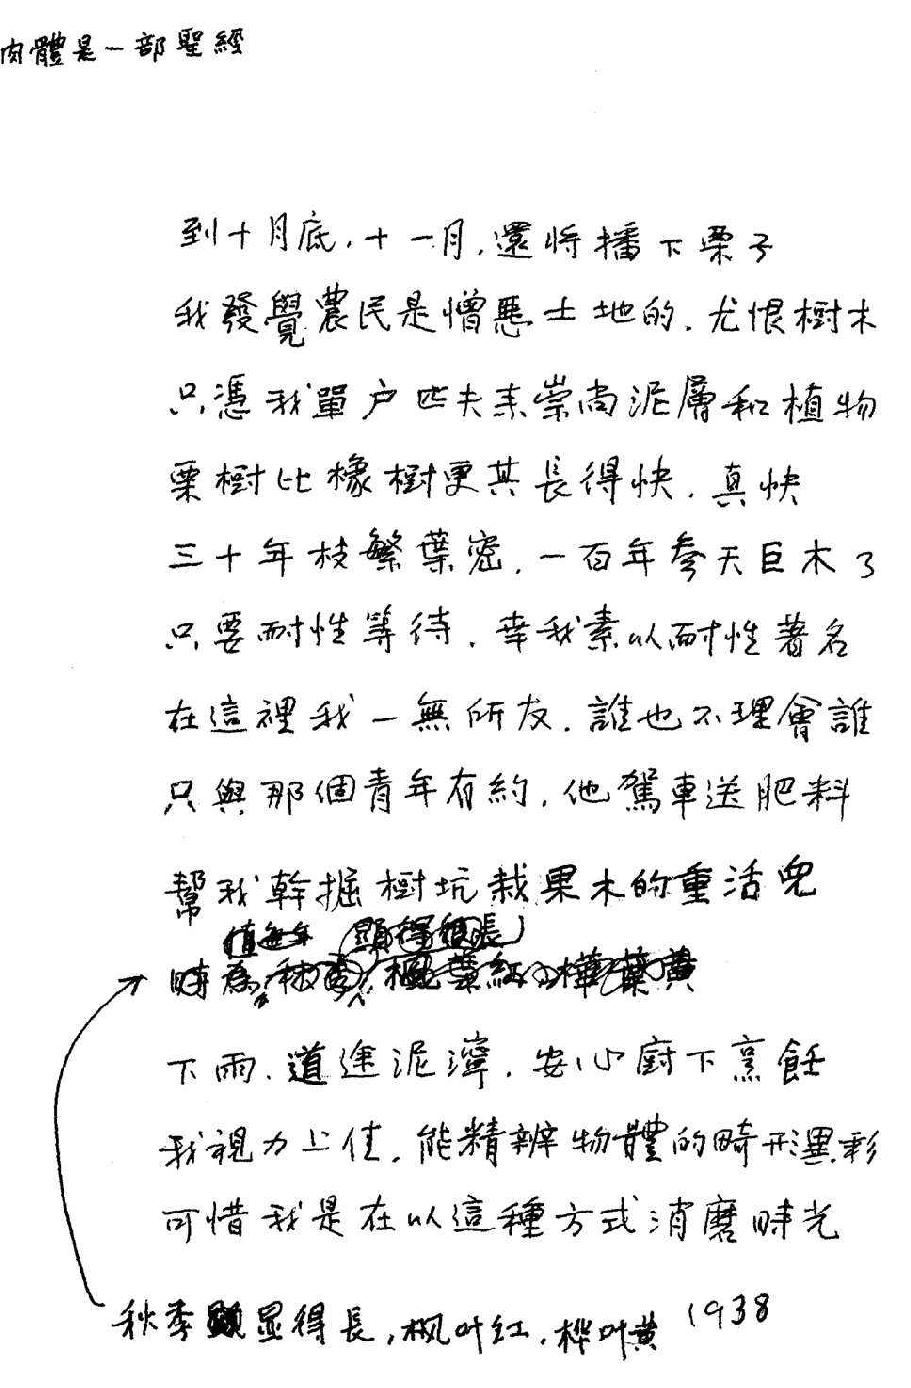 肉體是一部聖經
到十月底，十一月，還將播下栗子
我發覺農民是憎惡土地的，尤恨樹木
只憑我單户匹夫來崇尚泥層和植物
栗樹比橡樹更其長得快，真快
三十年枝繁葉密，一百年參天巨木了
只要耐性等待，幸我素以耐性著名
在這裡我一無所友，誰也不理會誰
只與那個青年有約，他駕車送肥料
幫我幹掘樹坑栽果木的重活兒
下雨，道途泥濘，安心廚下烹飪
我視力上佳，能精辨物體的畸形異彩
可惜我是在以這種方式消磨時光
秋季显得長，枫叶红，桦叶黄 1938